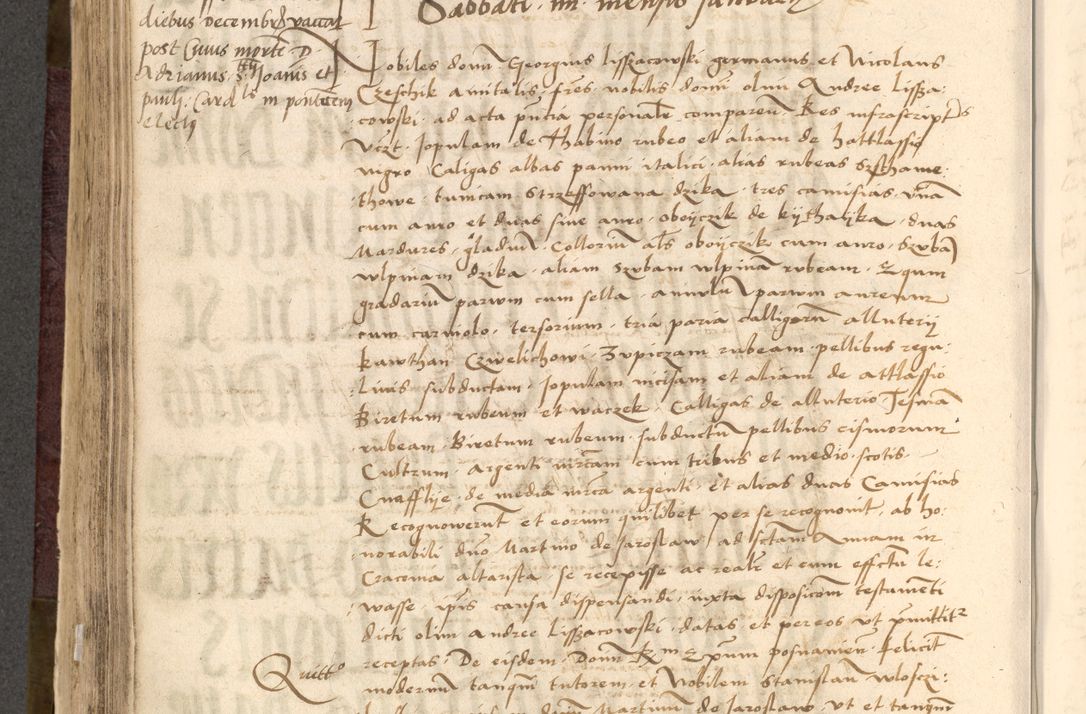 diebus decembr vaccat
post Cuius morte D.
Adrianus s. Joanis et
pauli Card m pontem
electus
Sabbati mensis Januarii
Nobiles domi Georgius lisszacowski germanus et Nicolaus
Czeschik amitalis fres nobilis domi olim Andree lissza:
cowski ad acta pncia personale comparen Res infrascriptas
Vczt Jopulam de Thabino rubeo et aliam de hattlassio
nigro Caligas albas panni italici alias rubeas Szchame:
thowe tunicam Strzeffowana dzika tres camisias vna
cum auro et duas sine auro oboyczik de kythayka duas
Mardures gladiu Colloriu als oboyczik cum auro Szuba
wlpinam dzika aliam Szubam wlpina rubeam Equm
gradariu parwm cum sella annulu parwm aureum
cum carniolo tersorium tria paria calligaru alluterii
kawthan Czwelichowi Zupiczam rubeam pellibus regu:
linis subductam Jopulam incisam et aliam de attlassio
Biretum rubeum et waczek Calligas de alluterio Jesma
rubeam Biretum rubeum subductu pellibus cismorum
Cultrum argenti mrcam cum tribus et medio scotis
Cnafflye de media mrca argenti Et alias duas Camisias
Recognowerut et eorum quilibet per se recognouit ab ho:
norabili dno Martino de Jaroslaw ad sctam Annam in
Cracouia altarista se recepisse ac realr et cum effctu le:
wasse ipis causa dispensandi iuxta disposicom testameti
dicti olim Andree Lisszacowski datas et per eos vt pmittitr
receptas De eisdem Domi posnanien felicit
Quitt
modernu tanqm tutorem et Nobilem Stanislau wlosczi:
Martinu de Jaroslaw vt et tanqm